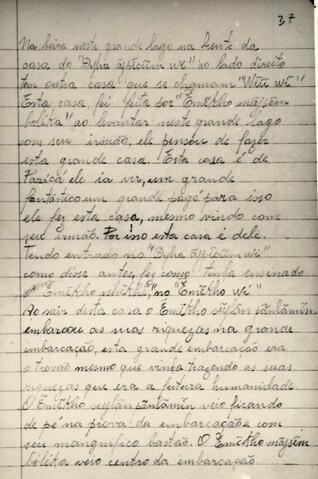 37
Na beira neste grande lago na frente da
casa do "Dyha ãyĩcĩum wi" ao lado direito
tem outra casa que se chamam "Wiii wi"
Esta casa, foi feita por "Emẽkho mãysẽm
bolita" ao levantar neste grande lago
com seu irmão, ele pensou de fazer
esta grande casa. Esta casa é de
Paricá ele ia vir, um grande
fantástico um grande pagé para isso
ele fez esta casa, mesmo vindo com
seu irmão. Por isso esta casa é dele.
Tendo entrado no "Dyha ãyĩcĩum wi"
como disse antes, fez como tinha ensinado
o "Emẽkho", no "Emẽkho wi"
Ao sair desta casa o Emẽkho
embarcou as suas riquezas na grande
embarcação, esta grande embarcação era
o trovão mesmo que vinha trazendo as suas
riquezas que era a futura humanidade.
O Emẽkho veio ficando
de pé na prova da embarcação e com
seu mangnífico bastão. O Emẽkho mãysẽm
bolita veio centro da embarcação